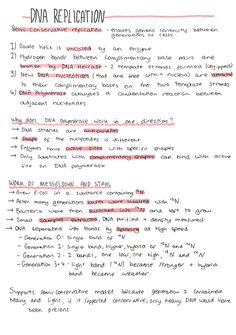 DNA REPLICATION
Semi-Conservative replication - ensures genetic continuity between
generations of cells
1) Double helix is uncoiled by an enzyme
2) Hydrogen bonds between complimentary base pairs are
broken by DNA Helicase - 2 template strands formed (unzipped)
3) New DNA nucleotides (that are free within nucleus) are attracted
to their complimentary bases on the two template strands
4) DNA Polymerase catalyses a condensation reaction between
adjacent nucleotides
Why does DNA polymerase work in one direction?
→ DNA strands are antiparallel
→ Shape of the nucleotides is different
→ Enzymes have active sites with specific shapes
→ Only substrates with complimentary shapes can bind with active
site on DNA polymerase
WORK OF MESSELSOHN AND STAHL
→ Grew E-coli in a substance containing ¹⁵N
→ After many generations bases were labelled with ¹⁵N
→ Bacteria were then switched into ¹⁴N and left to grow
→ Small samples extracted, DNA purified + density measured
→ DNA separated into bands by spinning at high speed
- Generation 0 - single band of ¹⁵N
- Generation 1 - single band, higher, hybrid of ¹⁵N and ¹⁴N
- Generation 2 - 2 bands, one low, one high, ¹⁵N and ¹⁴N
- Generation 3+4 - light band (¹⁴N) became stronger + hybrid
band became weaker
Supports semi-conservative model because generation 1 contained
heavy and light, if it supported conservative, only heavy DNA would have
been present